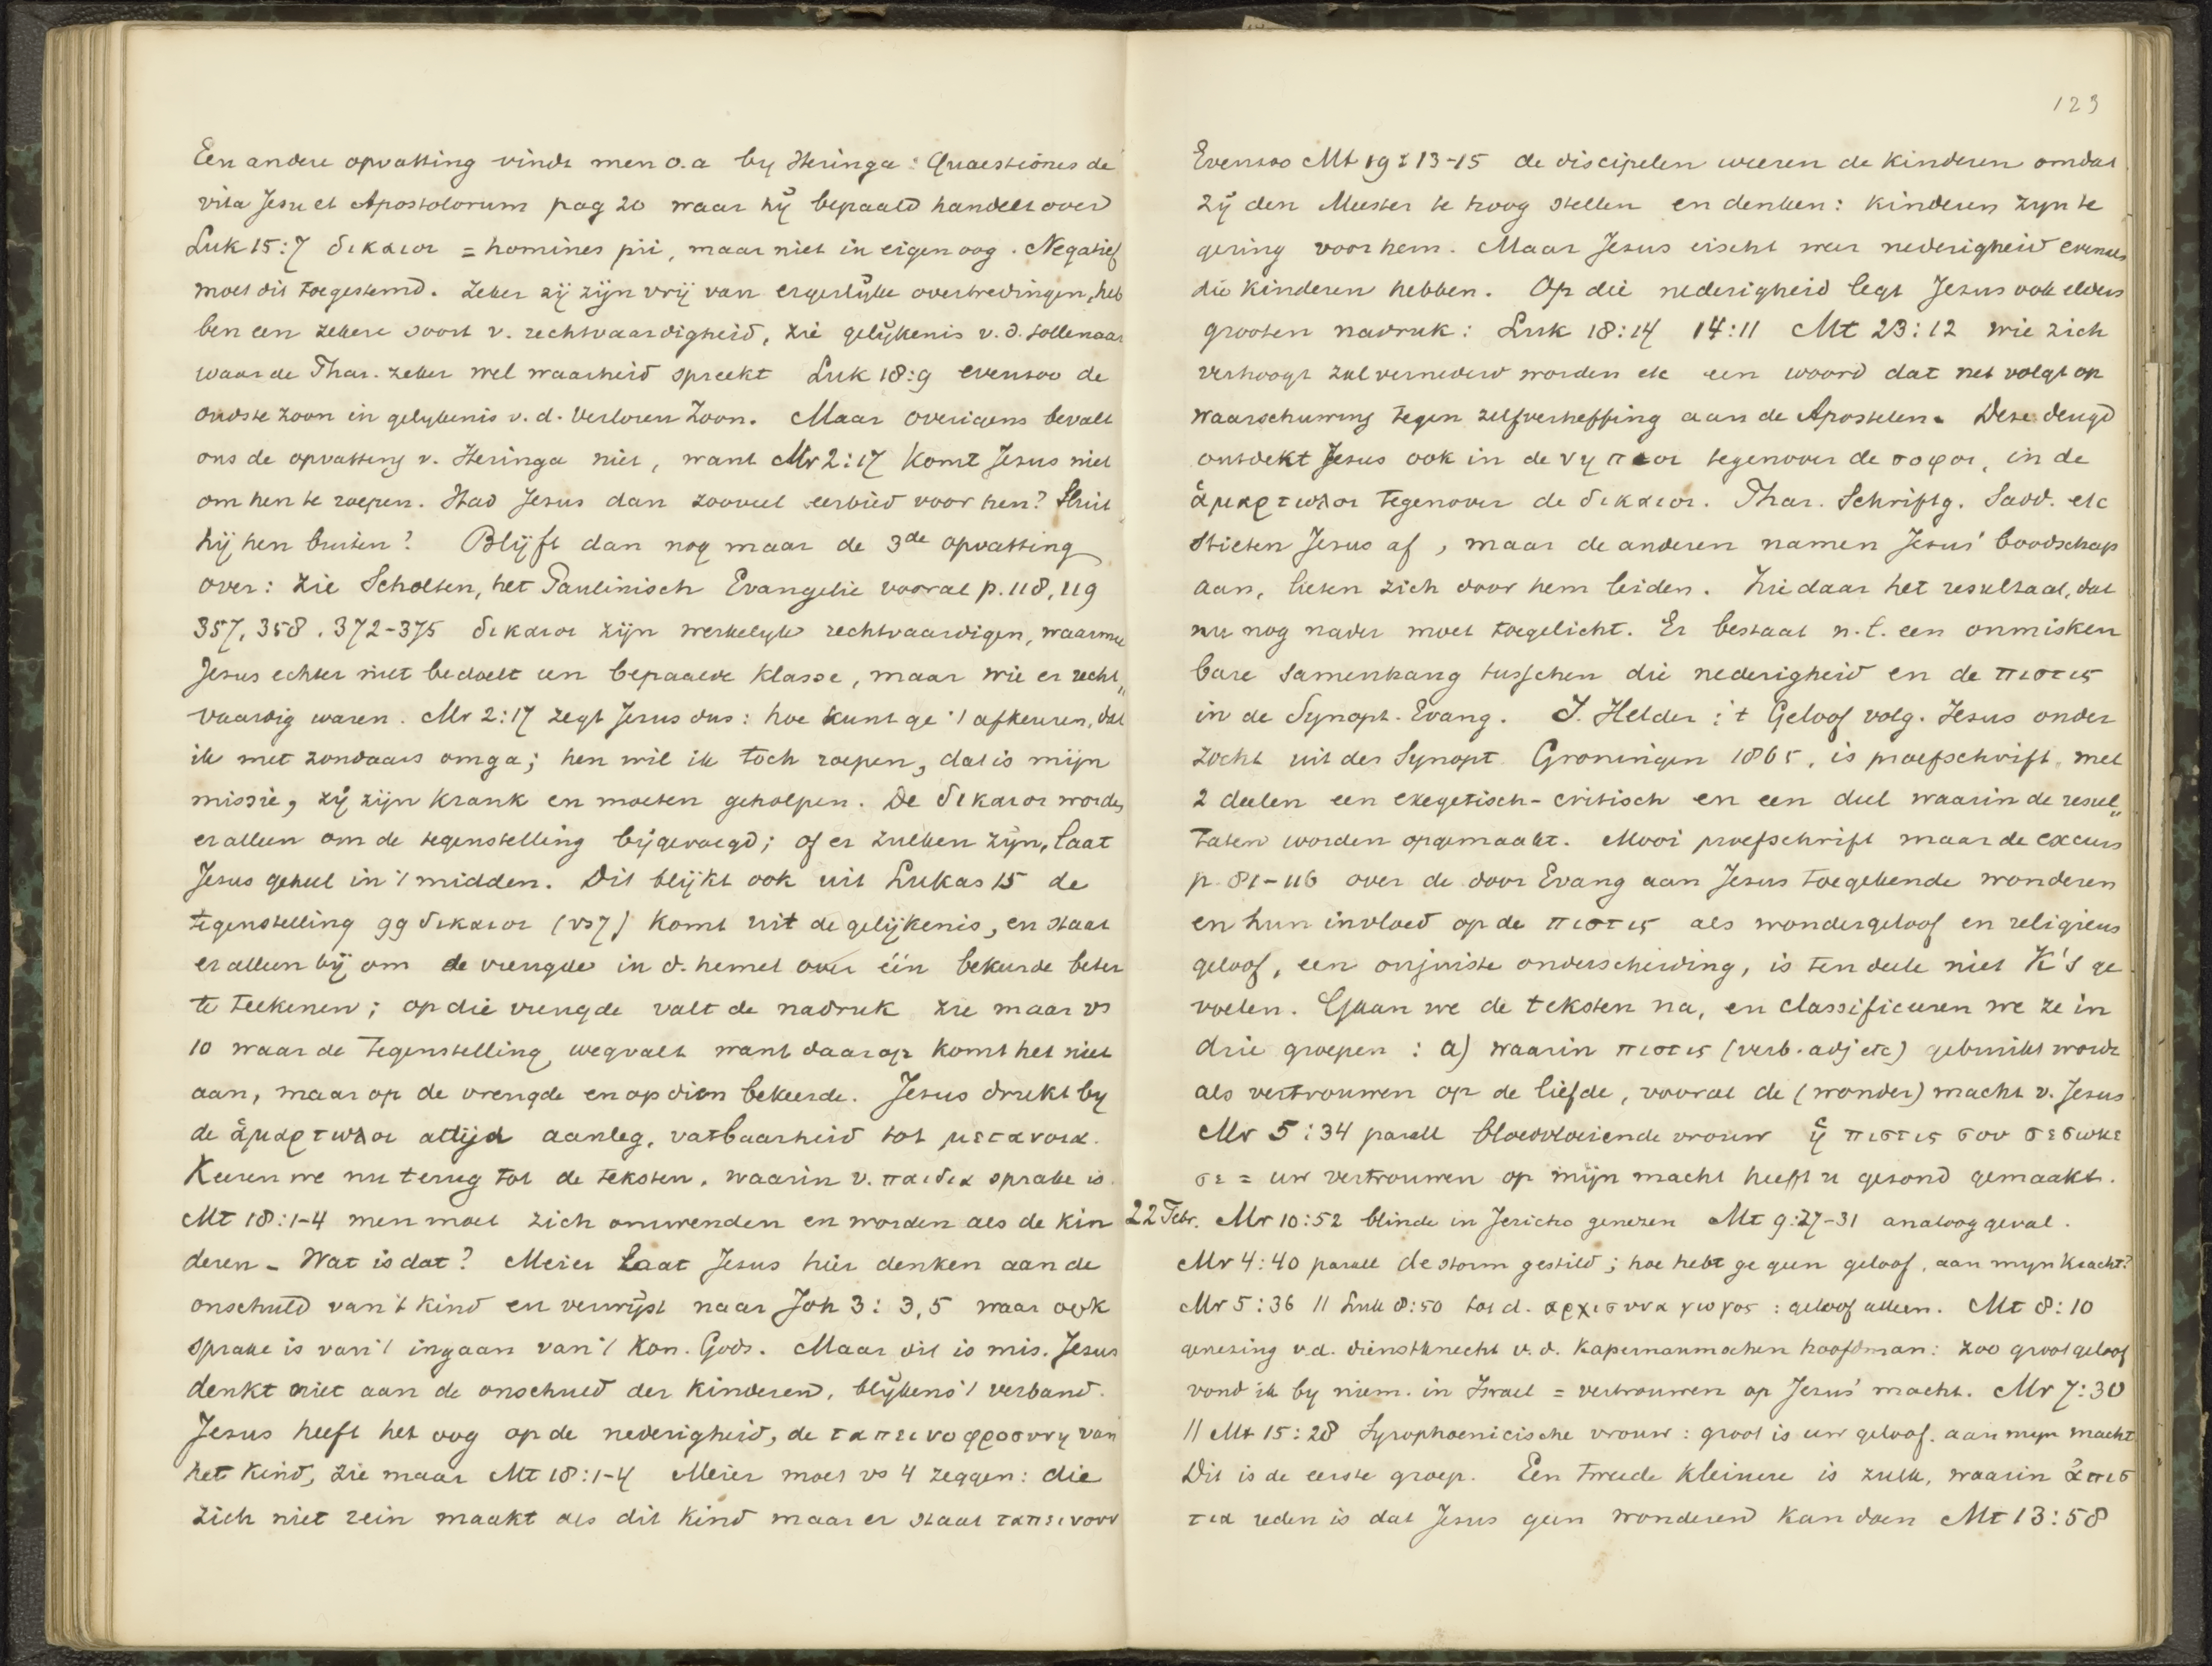 Een andere opvatting vindt men o.a by Heringa: Quaestiones de
vita Jesu et Apostolorum pag 20 waar hij bepaald handelt over
Luk 15:7 δικαιοι = homines pii, maar niet in eigen oog. Negatief
moet dit toegestemd. Zeker zij zijn vrij van ergerlijke overtredingen, heb
ben een zekere soort v. rechtvaardigheid, zie gelijkenis v. d. tollenaar
waar de Phar. zeker wel waarheid spreekt Luk 18:9 evenzoo de
oudste zoon in gelykenis v. d. Verloren Zoon. Maar overigens bevalt
ons de opvatting v. Heringa niet, want Mr 2:17 komt Jesus niet
om hen te roepen. Had Jesus dan zooveel eerbied voor hen? Sluit
hij hen buiten? Blijft dan nog maar de 3de opvatting
over: zie Scholten, het Paulinisch Evangelie vooral p. 118, 119
357, 358. 372-375 δικαιοι zijn werkelyke rechtvaardigen, waarmee
Jesus echter niet bedoelt een bepaalde klasse, maar wie er recht„
vaardig waren. Mr 2:17 zegt Jesus dus: hoe kunt ge 't afkeuren, dat
ik met zondaars omga; hen wil ik toch roepen, dat is mijn
missie, zij zijn krank en moeten geholpen. De δικαιοι worden
er alleen om de tegenstelling bijgevoegd; of er zulken zijn, laat
Jesus geheel in 't midden. Dit blijkt ook uit Lukas 15 de
tegenstelling 99 δικαιοι (vs 7) komt uit de gelijkenis, en staat
er alleen bij om de vreugde in d. hemel over één bekeerde beter
te teekenen; op die vreugde valt de nadruk zie maar vs
10 waar de tegenstelling wegvalt want daarop komt het niet
aan, maar op de vreugde en op dien bekeerde. Jesus drukt by
de ἁμαρτωλοι altijd aanleg, vatbaarheid tot μετανοια.
Keeren we nu terug tot de teksten, waarin v. παιδια sprake is.
Mt 18:1-4 men moet zich omwenden en worden als de kin
deren - Wat is dat? Meier laat Jesus hier denken aan de
onschuld van 't kind en verwijst naar Joh 3:3,5 waar ook
sprake is van 't ingaan van 't Kon. Gods. Maar dit is mis. Jesus
denkt niet aan de onschuld der kinderen, blijkens 't verband.
Jesus heeft het oog op de nederigheid, de ταπεινοφροσυνη van
het kind, zie maar Mt 18:1-4 Meier moet vs 4 zeggen: die
zich niet rein maakt als dit kind maar er staat ταπεινουν
123
Evenzoo Mt 19:13-15 de discipelen weeren de kinderen omdat
zij den Meester te hoog stellen en denken: kinderen zyn te
gering voor hem. Maar Jesus eischt weer nederigheid evenals
die kinderen hebben. Op die nederigheid legt Jesus ook elders
grooten nadruk: Luk 18:14 14:11 Mt 23:12 wie zich
verhoogt zal vernederd worden etc een woord dat net volgt op
waarschuwing tegen zelfverheffing aan de Apostelen. Deze deugd
ontdekt Jesus ook in de νηπιοι tegenover de σοφοι, in de
ἁμαρτωλοι tegenover de δικαιοι. Phar. Schriftg. Sadd. etc
stieten Jesus af, maar de anderen namen Jesus' boodschap
aan, lieten zich door hem leiden. Ziedaar het resultaat, dat
nu nog nader moet toegelicht. Er bestaat n.l. een onmisken
bare samenhang tusschen die nederigheid en de πιστις
in de Synopt. Evang. J. Helder: 't Geloof volg. Jesus onder
zocht uit der Synopt Groningen 1865, is proefschrift met
2 deelen een exegetisch-critisch en een deel waarin de resul„
taten worden opgemaakt. Mooi proefschrift maar de excurs
p. 81-116 over de door Evang aan Jesus toegekende wonderen
en hun invloed op de πιστις als wondergeloof en religieus
geloof, een onjuiste onderscheiding, is ten deele niet K's ge
voelen. Gaan we de teksten na, en classificeeren we ze in
drie groepen: a) waarin πιστις (verb. adj etc) gebruikt wordt
als vertrouwen op de liefde, vooral de (wonder) macht v. Jesus
Mr 5:34 parall bloedvloeiende vrouw ἡ πιστις σου σεσωκε
σε = uw vertrouwen op mijn macht heeft u gezond gemaakt.
22 Febr. Mr 10:52 blinde in Jericho genezen Mt 9:27-31 analoog geval.
Mr 4:40 parall de storm gestild; hoe hebt ge geen geloof, aan myn kracht?
Mr 5:36 || Luk 8:50 tot d. αρχισυναγωγος: geloof alleen. Mt 8:10
genezing v.d. dienstknecht v. d. Kapernaumschen hoofdman: zoo groot geloof
vond ik by niem. in Israel = vertrouwen op Jesus' macht. Mr 7:30
|| Mt 15:28 Syrophoenicische vrouw: groot is uw geloof. aan myn macht
Dit is de eerste groep. Een tweede kleinere is zulk, waarin ἀπισ
τια reden is dat Jesus geen wonderen kan doen Mt 13:58